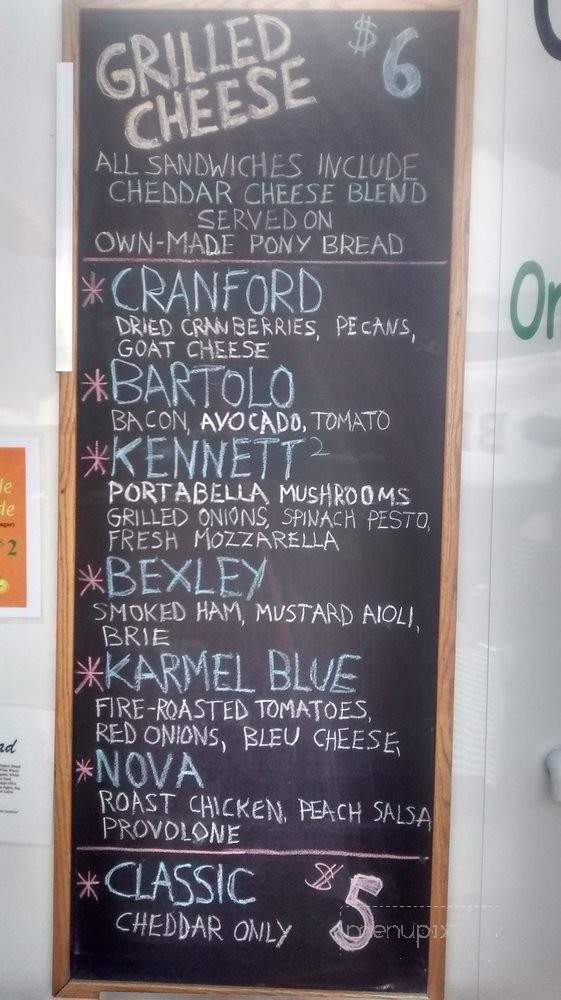 GRILLED $6
CHEESE
ALL SANDWICHES INCLUDE
CHEDDAR CHEESE BLEND
SERVED ON
OWN-MADE PONY BREAD
* CRANFORD
DRIED CRANBERRIES, PECANS,
GOAT CHEESE
* BARTOLO
BACON, AVOCADO, TOMATO
* KENNETT2
PORTABELLA MUSHROOMS
GRILLED ONIONS, SPINACH PESTO,
FRESH MOZZARELLA
* BEXLEY
SMOKED HAM, MUSTARD AIOLI,
BRIE
* KARMEL BLUE
FIRE-ROASTED TOMATOES,
RED ONIONS, BLEU CHEESE,
* NOVA
ROAST CHICKEN, PEACH SALSA
PROVOLONE
* CLASSIC $5
CHEDDAR ONLY
menupix
Or
$2